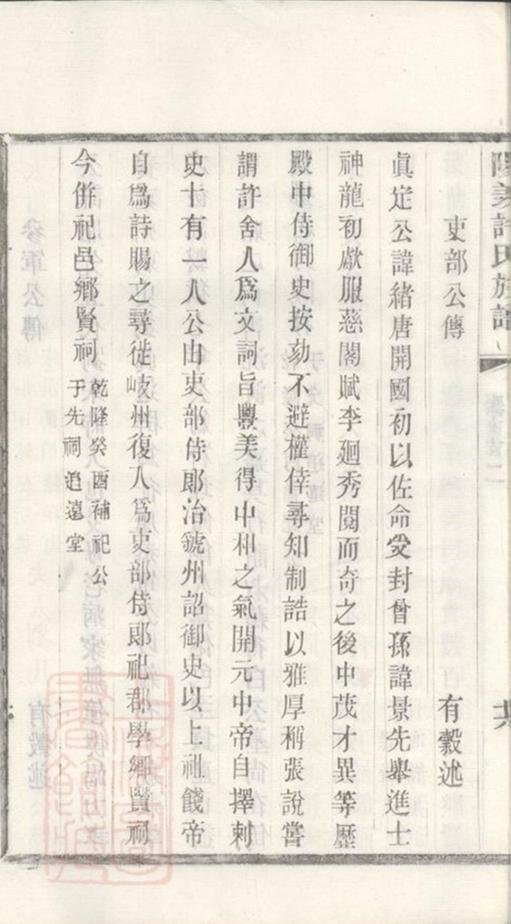 陽羡許氏族譜
吏部公傳 有穀述
眞定公諱緒唐開國初以佐命受封曾孫諱景先舉進士
神龍初獻服慈閣賦李廻秀閱而奇之後中茂才異等歷
殿中侍御史按劾不避權倖尋知制誥以雅厚稱張說嘗
謂許舍人爲文詞旨豐美得中和之氣開元中帝自擇刺
史十有一人公由吏部侍郎治虢州詔御史以上祖餞帝
自爲詩賜之尋徙岐州復入爲吏部侍郎祀郡學鄉賢祠
今併祀邑鄉賢祠 乾隆癸酉補祀公
于先祠追遠堂